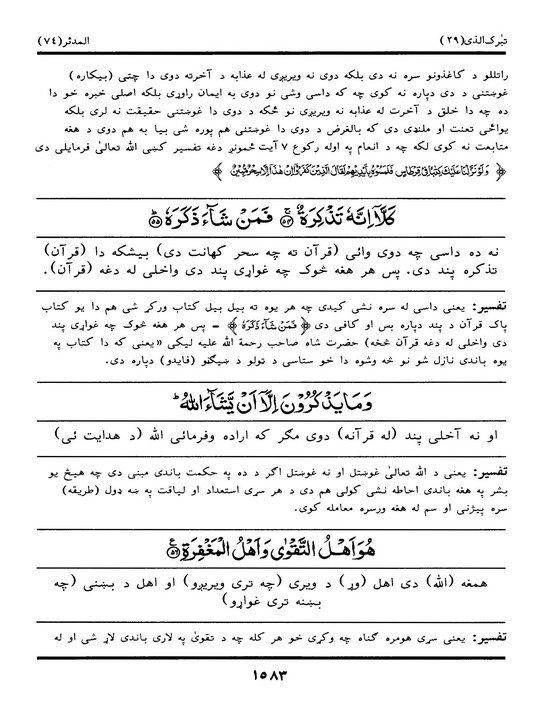 تبٰرك الذى (٢٩) المدثر (٧٤)
راتللو د کاغذونو سره نه دی بلکه دوی نه ویریږی له عذابه د آخرته دوی دا چتی (بیکاره)
غوښتنی د دی دپاره نه کوی چه که داسی وشی نو دوی به ایمان راوړی بلکه اصلی خبره خو دا
ده چه دا خلق د آخرت له عذابه نه ویریږی نو ځکه د دوی دا غوښتنی حقیقت نه لری بلکه
یواځی تعنت او ملنډی دی که بالفرض د دوی دا غوښتنی هم پوره شی بیا به هم دوی د هغه
متابعت نه کوی لکه چه د انعام په اوله رکوع ۷ آیت ځمونږ دغه تفسیر کښی الله تعالیٰ فرمایلی دی
﴿ وَلَوْ نَزَّلْنَا عَلَيْكَ كِتٰبًا فِىْ قِرْطَاسٍ فَلَمَسُوْهُ بِاَيْدِيْهِمْ لَقَالَ الَّذِيْنَ كَفَرُوْٓا اِنْ هٰذَٓا اِلَّا سِحْرٌ مُّبِيْنٌ ﴾
كَلَّآ اِنَّهٗ تَذْكِرَةٌ ۚ ﴿٥٤﴾ فَمَنْ شَآءَ ذَكَرَهٗ ؕ ﴿٥٥﴾
نه ده داسی چه دوی وائی (قرآن ته چه سحر کهانت دی) بیشکه دا (قرآن)
تذکره پند دی. پس هر هغه څوک چه غواړی پند دی واخلی له دغه (قرآن).
تفسیر: یعنی داسی له سره نشی کیدی چه هر یوه ته بیل بیل کتاب ورکړ شی هم دا یو کتاب
پاک قرآن د پند دپاره بس او کافی دی ﴿ فَمَنْ شَآءَ ذَكَرَهٗ ﴾ ــ پس هر هغه څوک چه غواړی پند
دی واخلی له دغه قرآن څخه) حضرت شاه صاحب رحمة الله علیه لیکی «یعنی که دا کتاب په
یوه باندی نازل شو نو څه وشوه دا خو ستاسی د ټولو د ښیګڼو (فایدو) دپاره دی.
وَمَا يَذْكُرُوْنَ اِلَّآ اَنْ يَّشَآءَ اللّٰهُ ؕ
او نه آخلی پند (له قرآنه) دوی مګر که اراده وفرمائی الله (د هدایت ئی)
تفسیر: یعنی د الله تعالیٰ غوښتل او نه غوښتل اگر د ده په حکمت باندی مبنی دی چه هیڅ یو
بشر په هغه باندی احاطه نشی کولی هم دی د هر سړی استعداد او لیاقت په ښه ډول (طریقه)
سره پیژنی او سم له هغه ورسره معامله کوی.
هُوَ اَهْلُ التَّقْوٰى وَاَهْلُ الْمَغْفِرَةِ ﴿٥٦﴾
همغه (الله) دی اهل (وړ) د ویری (چه تری ویریږو) او اهل د بښنی (چه
بښنه تری غواړو)
تفسیر: یعنی سړی هومره ګناه چه وکړی خو هر کله چه د تقویٰ په لاری باندی لاړ شی او له
١٥٨٣